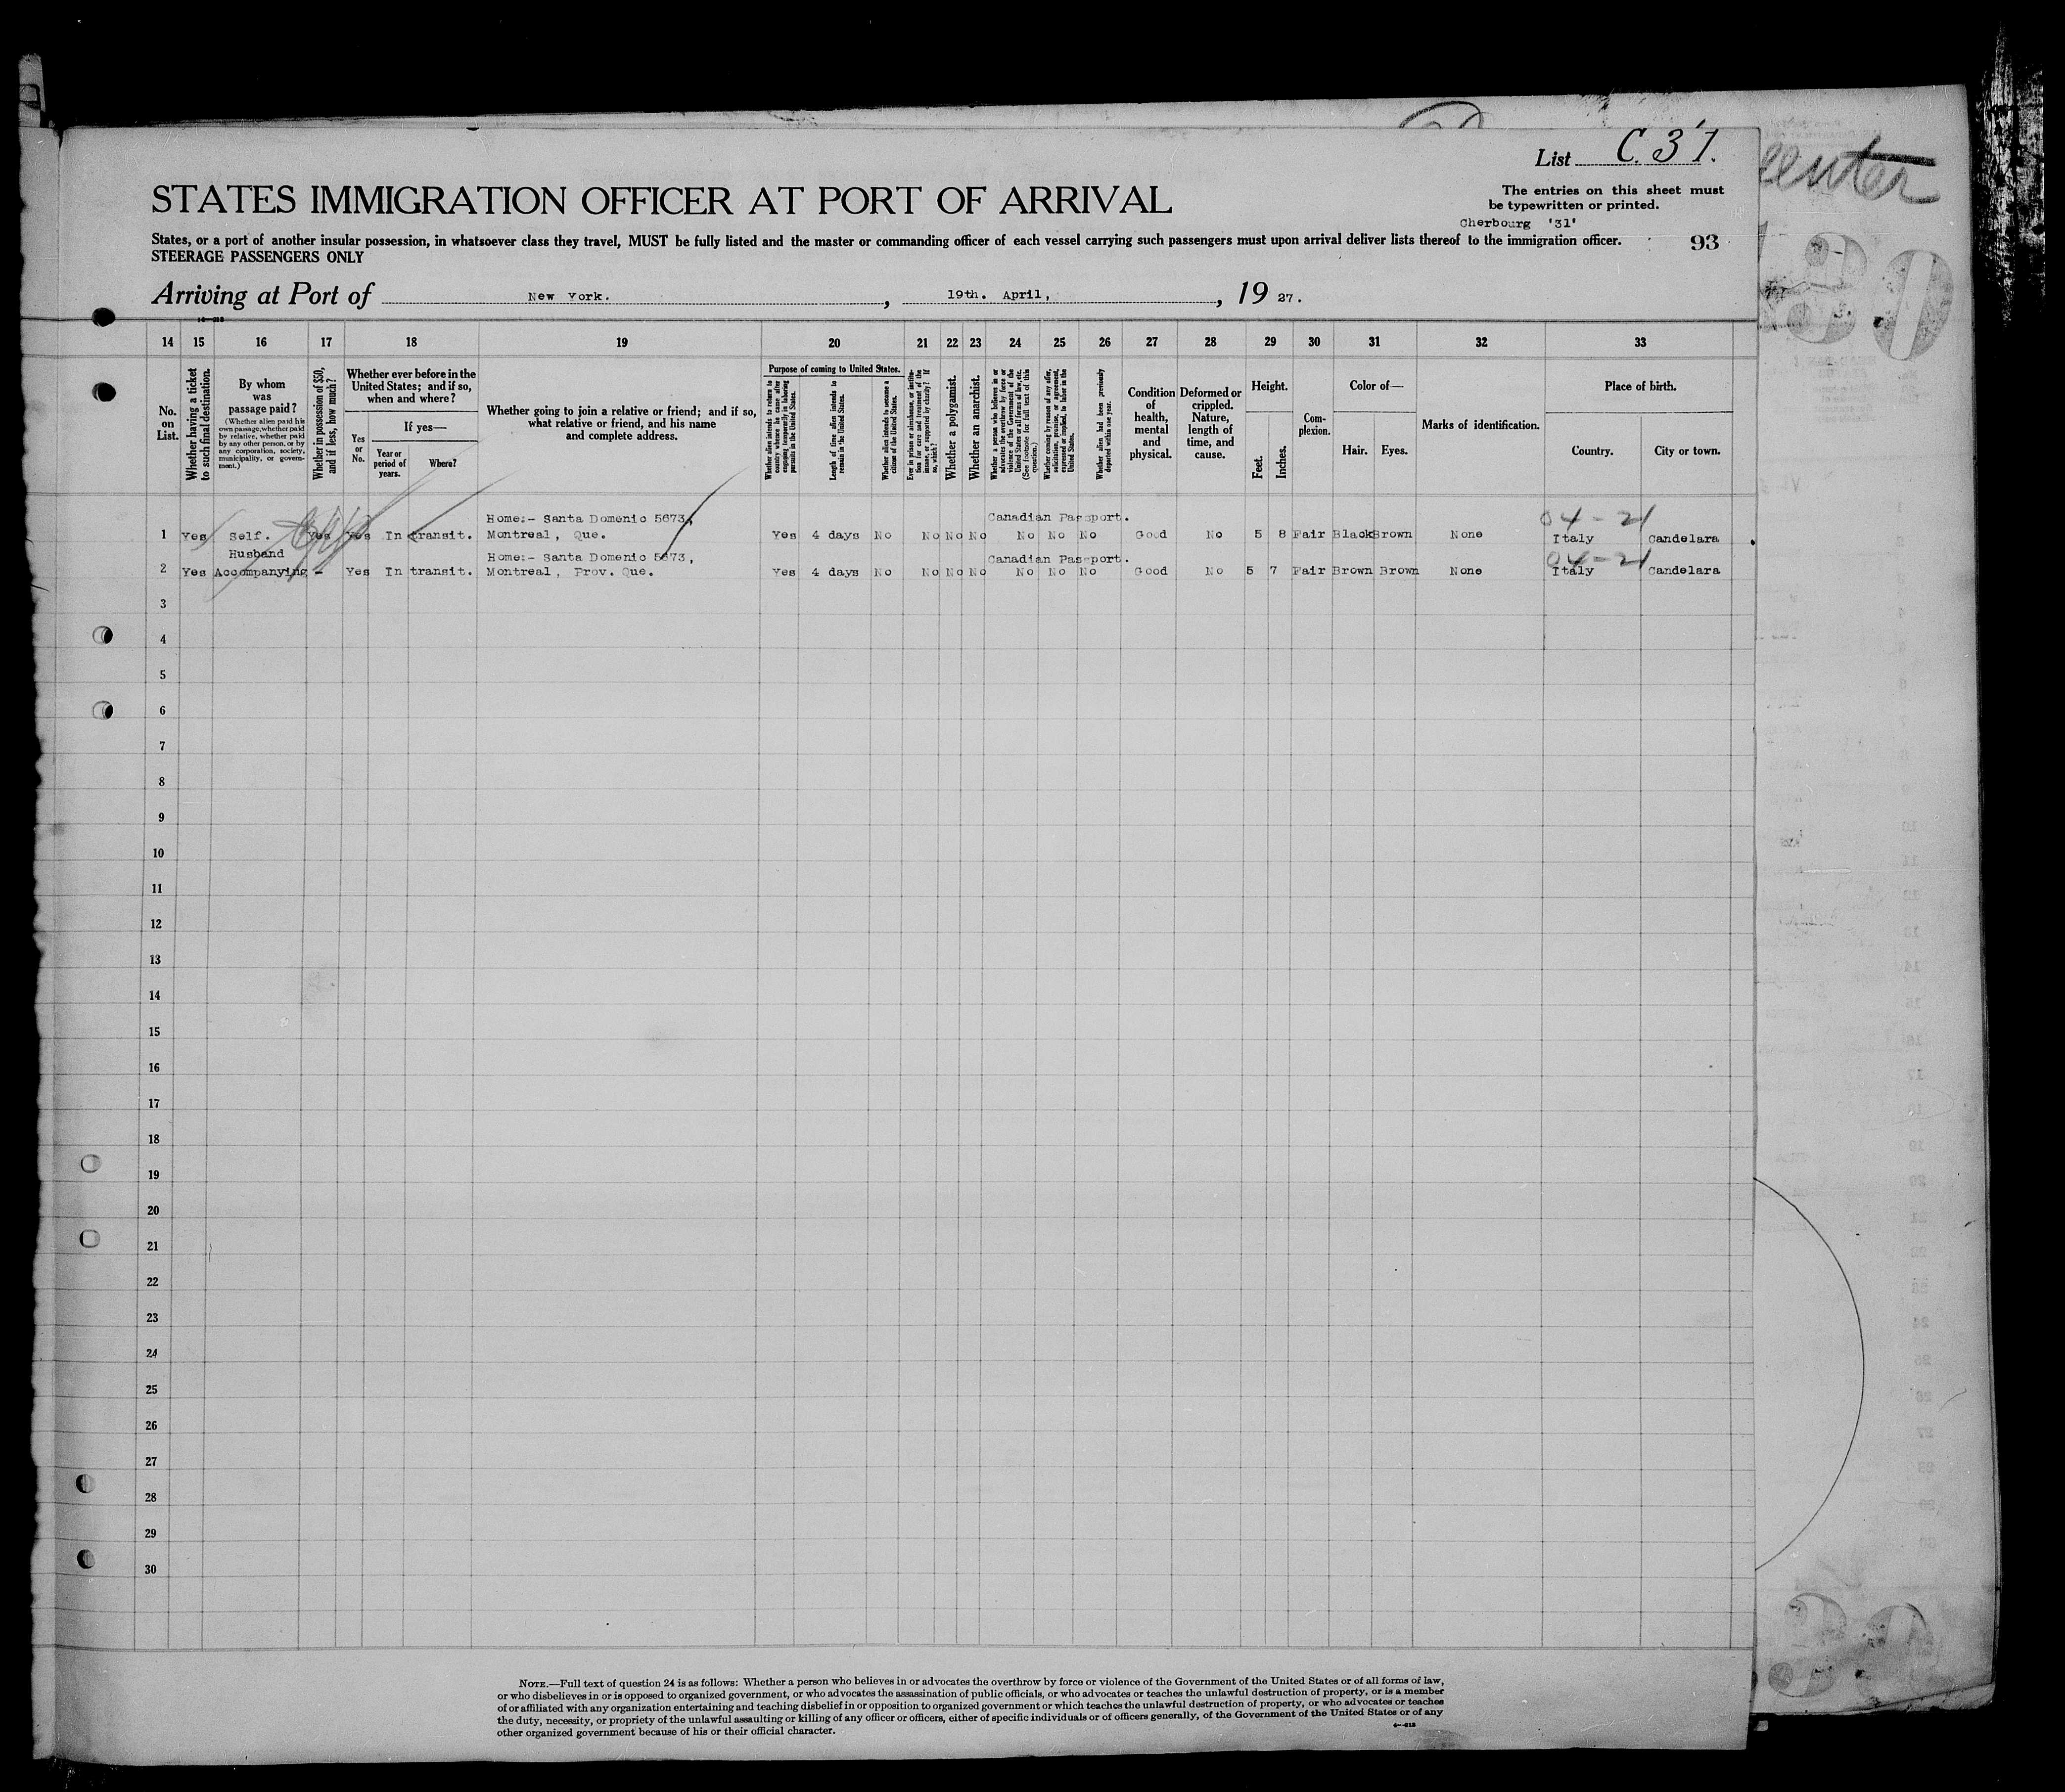 List C. 37.
STATES IMMIGRATION OFFICER AT PORT OF ARRIVAL
The entries on this sheet must
be typewritten or printed.
Cherbourg '31'
States, or a port of another insular possession, in whatsoever class they travel, MUST be fully listed and the master or commanding officer of each vessel carrying such passengers must upon arrival deliver lists thereof to the immigration officer.
93
STEERAGE PASSENGERS ONLY
Arriving at Port of New York. , 19th. April, , 19 27.
14 15 16 17 18 19 20 21 22 23 24 25 26 27 28 29 30 31 32 33
No. on List.
Whether having a ticket to such final destination.
By whom was passage paid?
(Whether alien paid his own passage, whether paid by relative, whether paid by any other person, or by any corporation, society, municipality, or government.)
Whether in possession of $50, and if less, how much?
Whether ever before in the United States; and if so, when and where?
Yes or No.
If yes—
Year or period of years.
Where?
Whether going to join a relative or friend; and if so, what relative or friend, and his name and complete address.
Purpose of coming to United States.
Whether alien intends to return to country whence he came after engaging temporarily in laboring pursuits in the United States.
Length of time alien intends to remain in the United States.
Whether alien intends to become a citizen of the United States.
Ever in prison or almshouse, or institution for care and treatment of the insane, or supported by charity? If so, which?
Whether a polygamist.
Whether an anarchist.
Whether a person who believes in or advocates the overthrow by force or violence of the Government of the United States or all forms of law, etc. (See footnote for full text of this question.)
Whether coming by reason of any offer, solicitation, promise, or agreement, expressed or implied, to labor in the United States.
Whether alien had been previously deported within one year.
Condition of health, mental and physical.
Deformed or crippled. Nature, length of time, and cause.
Height.
Feet. Inches.
Complexion.
Color of—
Hair. Eyes.
Marks of identification.
Place of birth.
Country. City or town.
Home:- Santa Domenic 5673, Canadian Passport. 04-21
1 Yes Self. Yes Yes In transit. Montreal, Que. Yes 4 days No No No No No No No Good No 5 8 Fair Black Brown None Italy Candelara
Husband Home:- Santa Domenic 5673, Canadian Passport. 04-21
2 Yes Accompanying - Yes In transit. Montreal, Prov. Que. Yes 4 days No No No No No No No Good No 5 7 Fair Brown Brown None Italy Candelara
3
4
5
6
7
8
9
10
11
12
13
14
15
16
17
18
19
20
21
22
23
24
25
26
27
28
29
30
NOTE.—Full text of question 24 is as follows: Whether a person who believes in or advocates the overthrow by force or violence of the Government of the United States or of all forms of law,
or who disbelieves in or is opposed to organized government, or who advocates the assassination of public officials, or who advocates or teaches the unlawful destruction of property, or is a member
of or affiliated with any organization entertaining and teaching disbelief in or opposition to organized government or which teaches the unlawful destruction of property, or who advocates or teaches
the duty, necessity, or propriety of the unlawful assaulting or killing of any officer or officers, either of specific individuals or of officers generally, of the Government of the United States or of any
other organized government because of his or their official character.